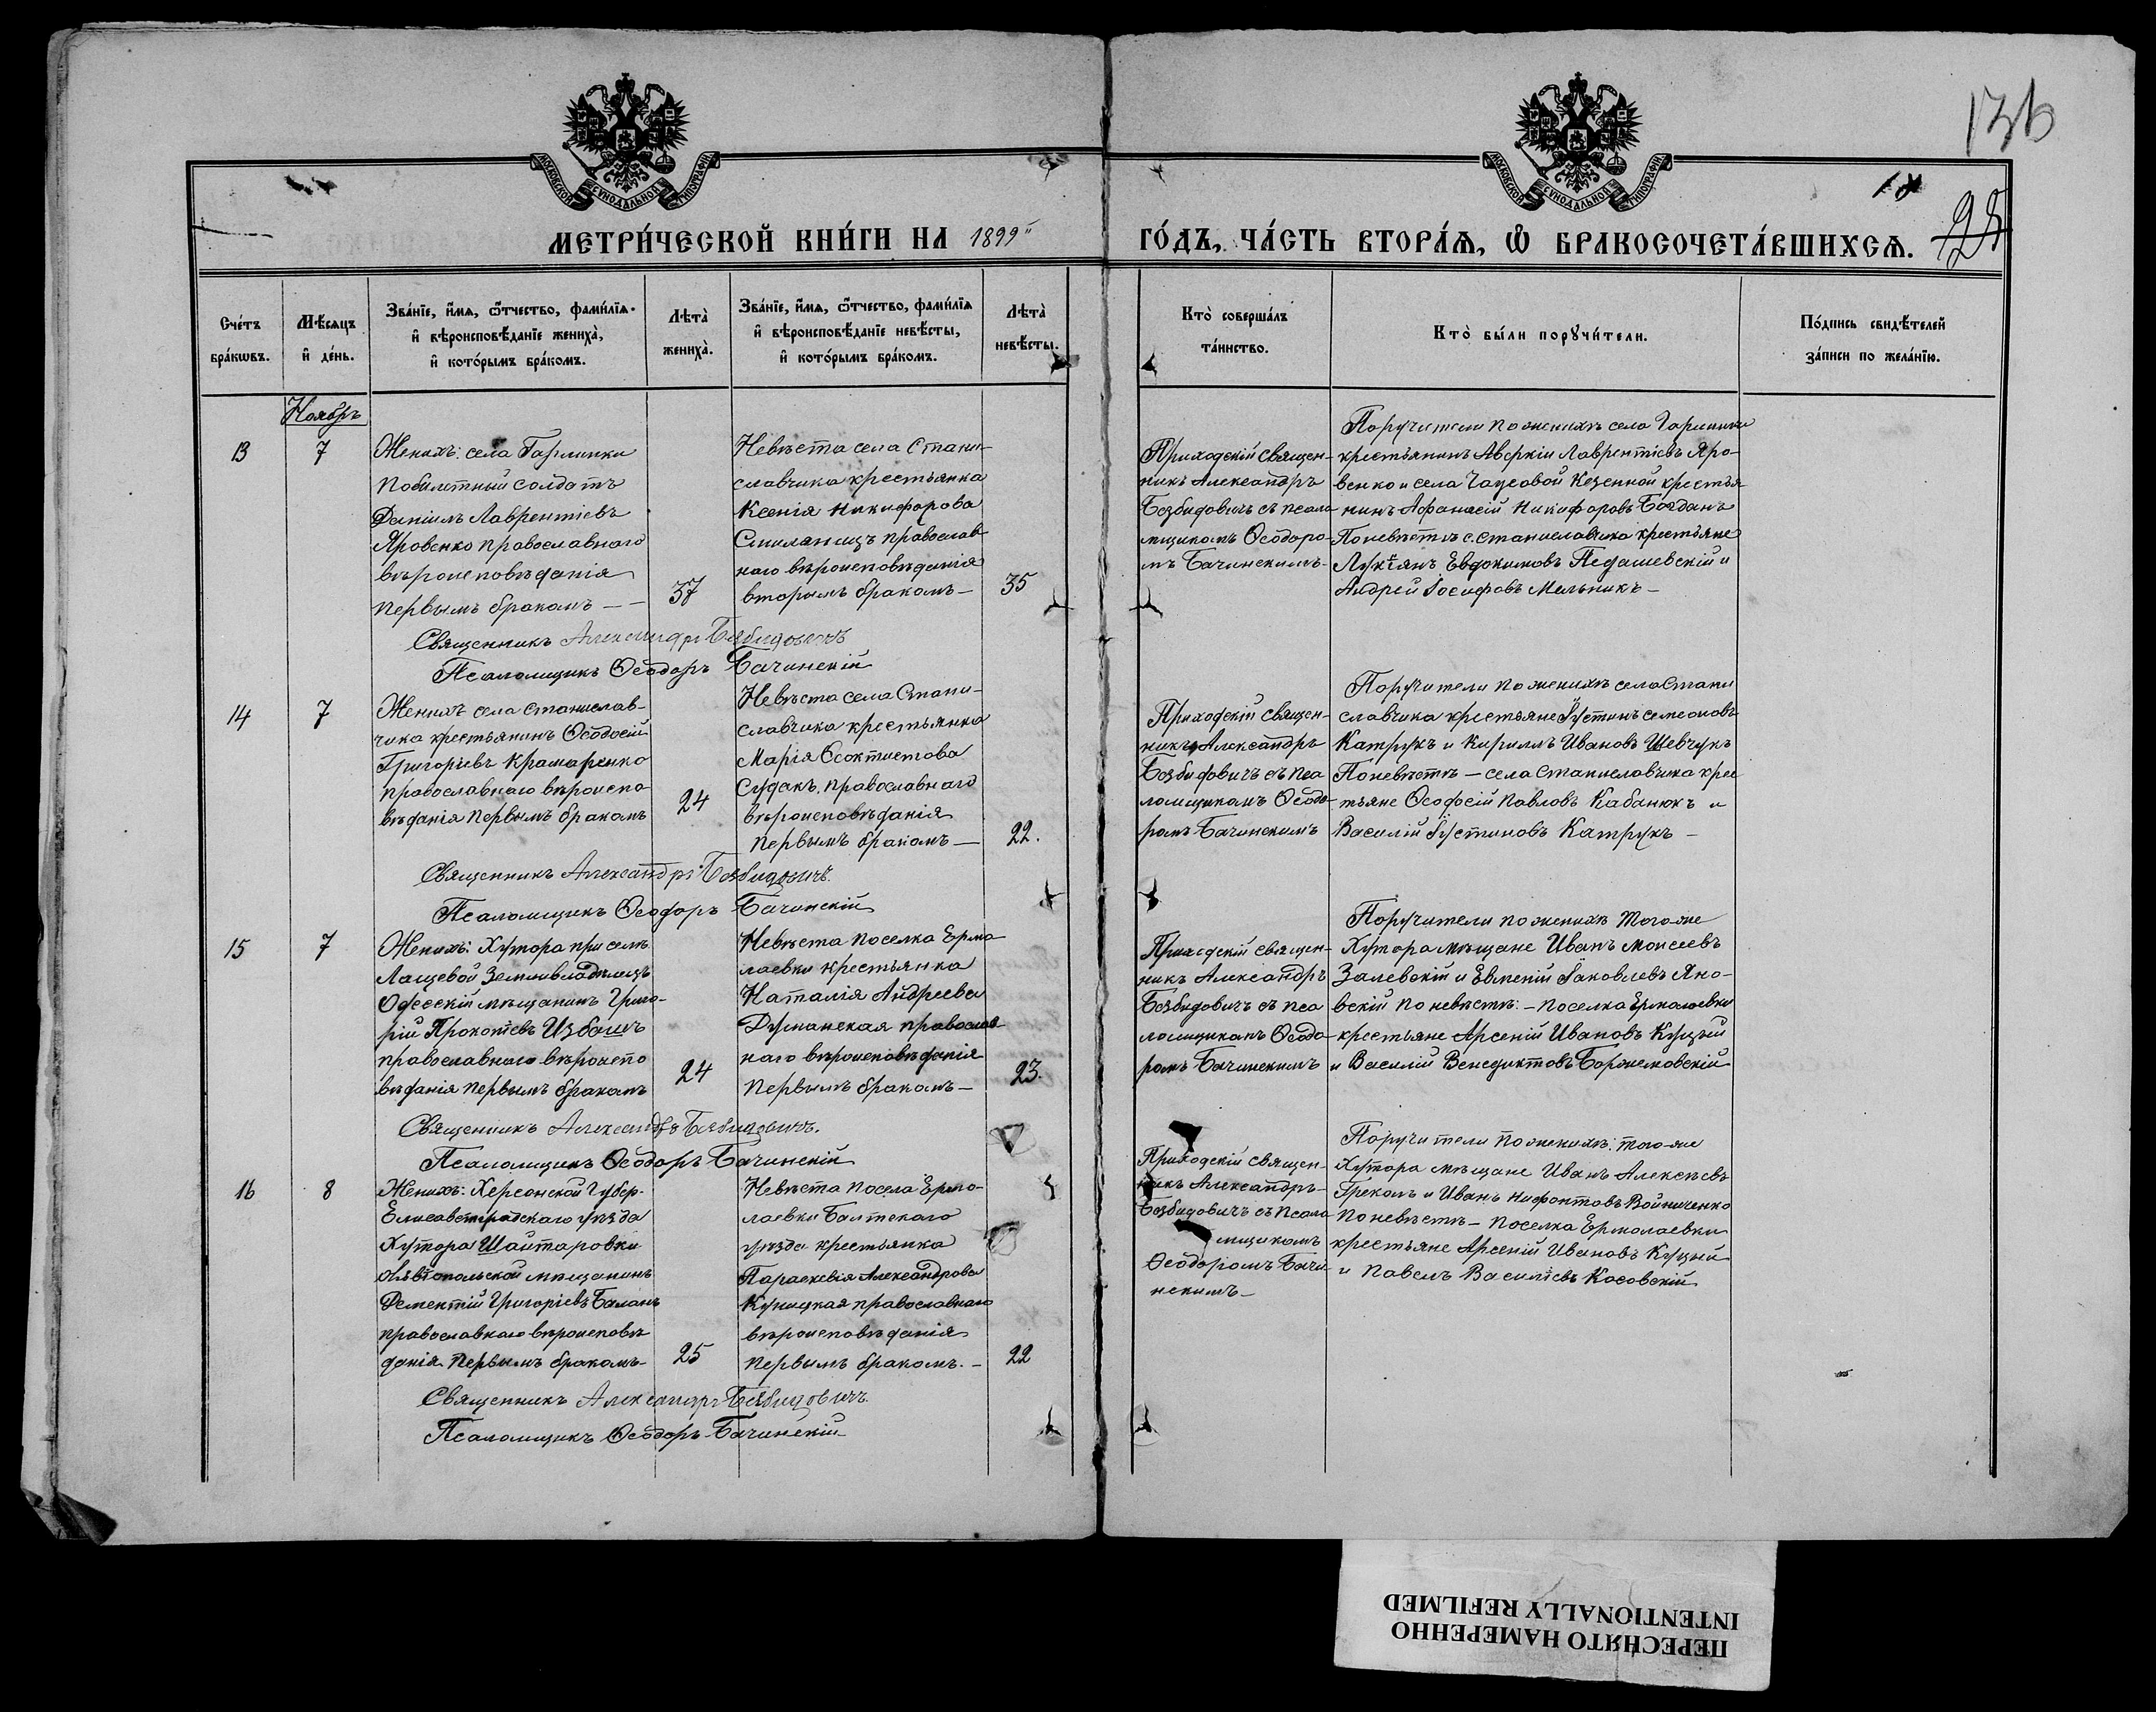 136
18
95
МОСКОВСКОЙ СѴНОДАЛЬНОЙ ТИПОГРАФІИ
МОСКОВСКОЙ СѴНОДАЛЬНОЙ ТИПОГРАФІИ
МЕТРИ́ЧЕСКОЙ КНИ́ГИ НА 1899
ГО́ДЪ, ЧА́СТЬ ВТОРА́Ѧ, Ѿ БРАКОСОЧЕТА́ВШИХСѦ.
Сче́тъ бра́кѡвъ.
Мѣ́сѧцъ и҆ де́нь.
Зва́нїе, и҆́мѧ, ѻ҆́тчество, фами́лїѧ
и҆ вѣроисповѣ́данїе жениха̀,
и҆ кото́рымъ бра́комъ.
Лѣта̀ жениха̀.
Зва́нїе, и҆́мѧ, ѻ҆́тчество, фами́лїѧ
и҆ вѣроисповѣ́данїе невѣ́сты,
и҆ кото́рымъ бра́комъ.
Лѣта̀ невѣ́сты.
Кто̀ соверша́лъ та́инство.
Кто̀ бы́ли порꙋчи́тели.
По́дпись свидѣ́телей за́писи по жела́нїю.
Ноябрь
13
7
Женихъ: села Гарминки
побилетный солдатъ
Даніилъ Лаврентіевъ
Яровенко православнаго
вѣроисповѣданія
первымъ бракомъ —
37
Невѣста села Стани-
славчика крестьянка
Ксенія Никифорова
православ
наго вѣроисповѣданія
вторымъ бракомъ —
35
Приходскій священ-
никъ Александръ
Безвидовичъ съ псало
мщикомъ Ѳеодоро-
мъ Бачинскимъ
Поручители по женихѣ села Гарминки
крестьянинъ Аверкій Лаврентіевъ Яро-
венко и села Чаусовой Казенной крестья
нинъ Афанасій Никифоровъ Богданъ
По невѣстѣ с. Станиславчика крестьяне
Лукіянъ Евдокимовъ Педашевскій и
Андрей Іосифовъ Мельникъ —
Священникъ Александръ Безвидовичъ
Псаломщикъ Ѳеодоръ Бачинскій
14
7
Женихъ села Станислав-
чика крестьянинъ Ѳеодосій
Григоріевъ Крамаренко
православнаго вѣроиспо
вѣданія первымъ бракомъ
24
Невѣста села Стани-
славчика крестьянка
Марія Ѳеоктистова
Судакъ, православнаго
вѣроисповѣданія
первымъ бракомъ —
22.
Приходскій священ-
никъ Александръ
Безвидовичъ съ пса
ломщикомъ Ѳеодо-
ромъ Бачинскимъ
Поручители по женихѣ села Стани
славчика крестьяне Іустинъ Семеоновъ
Катрукъ и Кириллъ Ивановъ Шевчукъ
По невѣстѣ — села Станиславчика крес
тьяне Ѳеодосій Павловъ Кабанюкъ и
Василій Іустиновъ Катрукъ —
Священникъ Александръ Безвидовичъ.
Псаломщикъ Ѳеодоръ Бачинскій
15
7
Женихъ: Хутора при селѣ
Лащевой Землевладѣлецъ
Одесскій мѣщанинъ Григо-
рій Прокопіевъ Избашъ
православнаго вѣроиспо
вѣданія первымъ бракомъ
24
Невѣста поселка Ермо
лаевки крестьянка
Наталія Андреева
Думанская православ-
наго вѣроисповѣданія
первымъ бракомъ —
23.
Приходскій священ-
никъ Александръ
Безвидовичъ съ пса
ломщикомъ Ѳеодо-
ромъ Бачинскимъ
Поручители по женихѣ того же
Хутора мѣщане Иванъ Моисеевъ
Залевскій и Евменій Іаковлевъ Яно-
вскій по невѣстѣ: — поселка Ермолаевки
крестьяне Арсеній Ивановъ Куцый
и Василій Венедиктовъ Боржемовскій
Священникъ Александръ Безвидовичъ.
Псаломщикъ Ѳеодоръ Бачинскій
16
8
Женихъ: Херсонской Губер.
Елисаветградскаго уѣзда
Хутора Шайтаровки
Ольвіопольской мѣщанинъ
Дементій Григоріевъ Баланъ
православнаго вѣроисповѣ
данія первымъ бракомъ
25
Невѣста посела Ермо-
лаевки Балтскаго
уѣзда крестьянка
Параскевія Александрова
Куницкая православнаго
вѣроисповѣданія
первымъ бракомъ. —
22
Приходскій священ-
никъ Александръ
Безвидовичъ съ псало
мщикомъ
Ѳеодоромъ Бачи-
нскимъ —
Поручители по женихѣ: того же
Хутора мѣщане Иванъ Алексѣевъ
Грекомъ и Иванъ Нифонтовъ Войниченко
По невѣстѣ — поселка Ермолаевки
крестьяне Арсеній Ивановъ Куцый
и Павелъ Василіевъ Косовскій
Священникъ Александръ Безвидовичъ.
Псаломщикъ Ѳеодоръ Бачинскій
ПЕРЕСНЯТО НАМЕРЕННО
INTENTIONALLY REFILMED